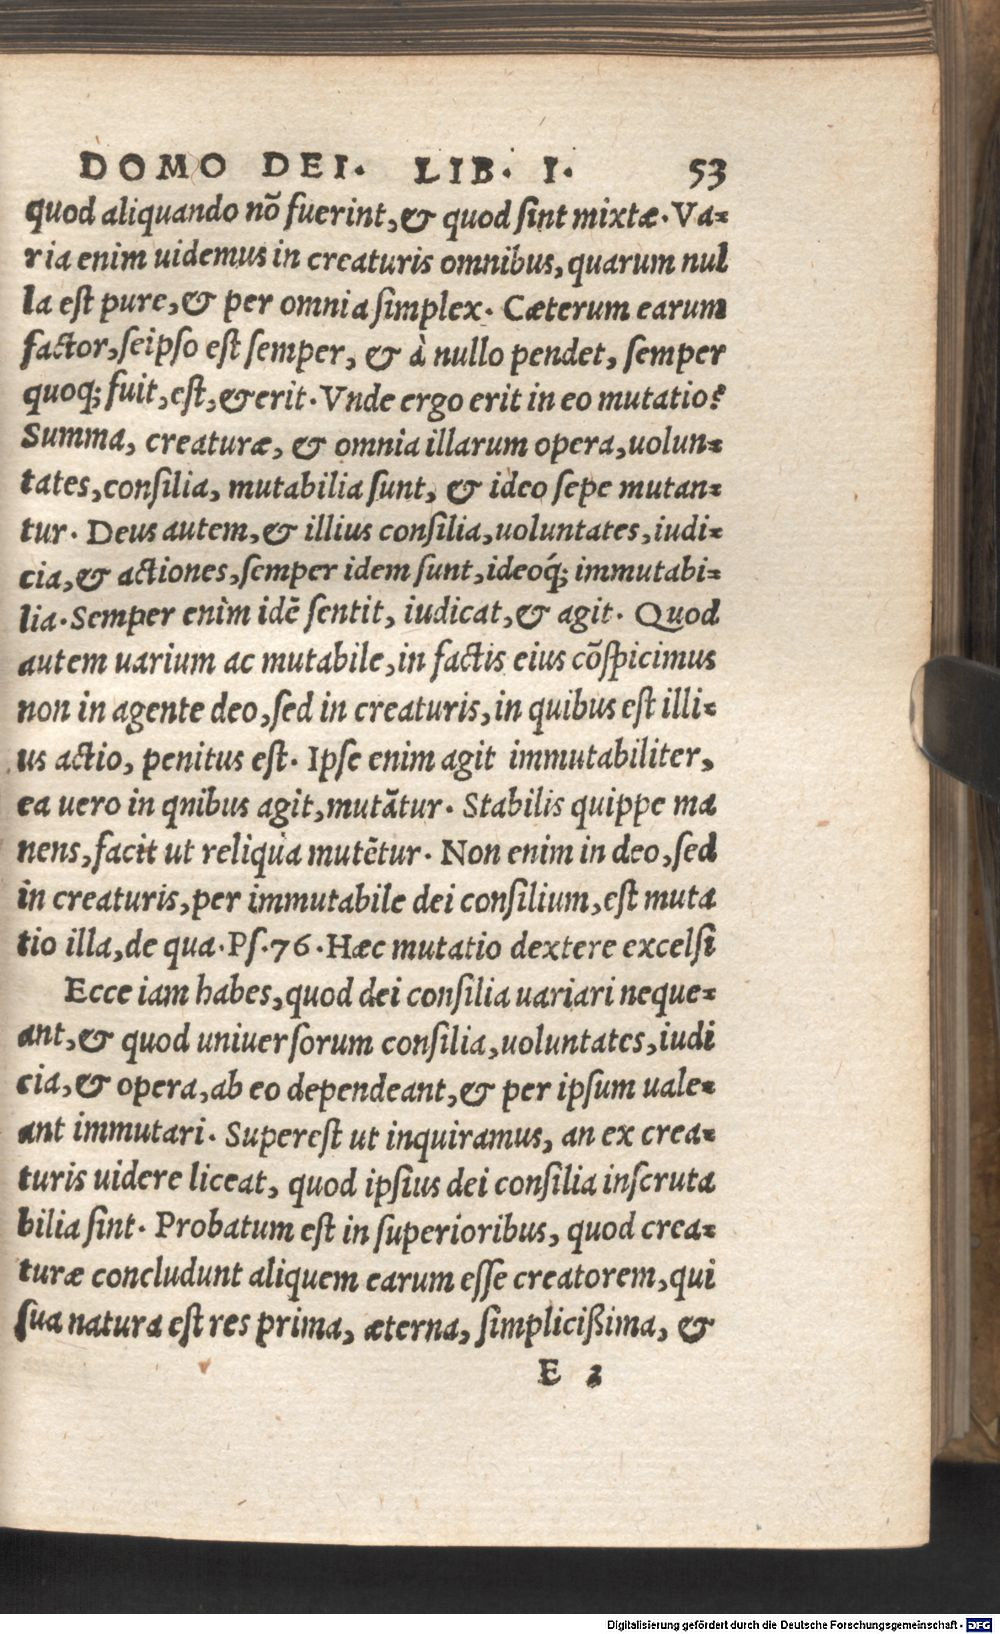 DOMO DEI. LIB. I. 53
quod aliquando nõ fuerint, & quod sint mixtæ. Va-
ria enim uidemus in creaturis omnibus, quarum nul
la est pure, & per omnia simplex. Cæterum earum
factor, seipso est semper, & à nullo pendet, semper
quoq; fuit, est, & erit. Vnde ergo erit in eo mutatio?
Summa, creaturæ, & omnia illarum opera, uolun-
tates, consilia, mutabilia sunt, & ideo sepe mutan-
tur. Deus autem, & illius consilia, uoluntates, iudi-
cia, & actiones, semper idem sunt, ideoq́; immutabi-
lia. Semper enim idẽ sentit, iudicat, & agit. Quod
autem uarium ac mutabile, in factis eius cõspicimus
non in agente deo, sed in creaturis, in quibus est illi-
us actio, penitus est. Ipse enim agit immutabiliter,
ea uero in qnibus agit, mutãtur. Stabilis quippe ma
nens, facit ut reliqua mutẽtur. Non enim in deo, sed
in creaturis, per immutabile dei consilium, est muta
tio illa, de qua. Ps. 76. Hæc mutatio dextere excelsi
Ecce iam habes, quod dei consilia uariari neque-
ant, & quod uniuersorum consilia, uoluntates, iudi
cia, & opera, ab eo dependeant, & per ipsum uale-
ant immutari. Superest ut inquiramus, an ex crea-
turis uidere liceat, quod ipsius dei consilia inscruta
bilia sint. Probatum est in superioribus, quod crea-
turæ concludunt aliquem earum esse creatorem, qui
sua natura est res prima, æterna, simplicißima, &
E 2
Digitalisierung gefördert durch die Deutsche Forschungsgemeinschaft - DFG